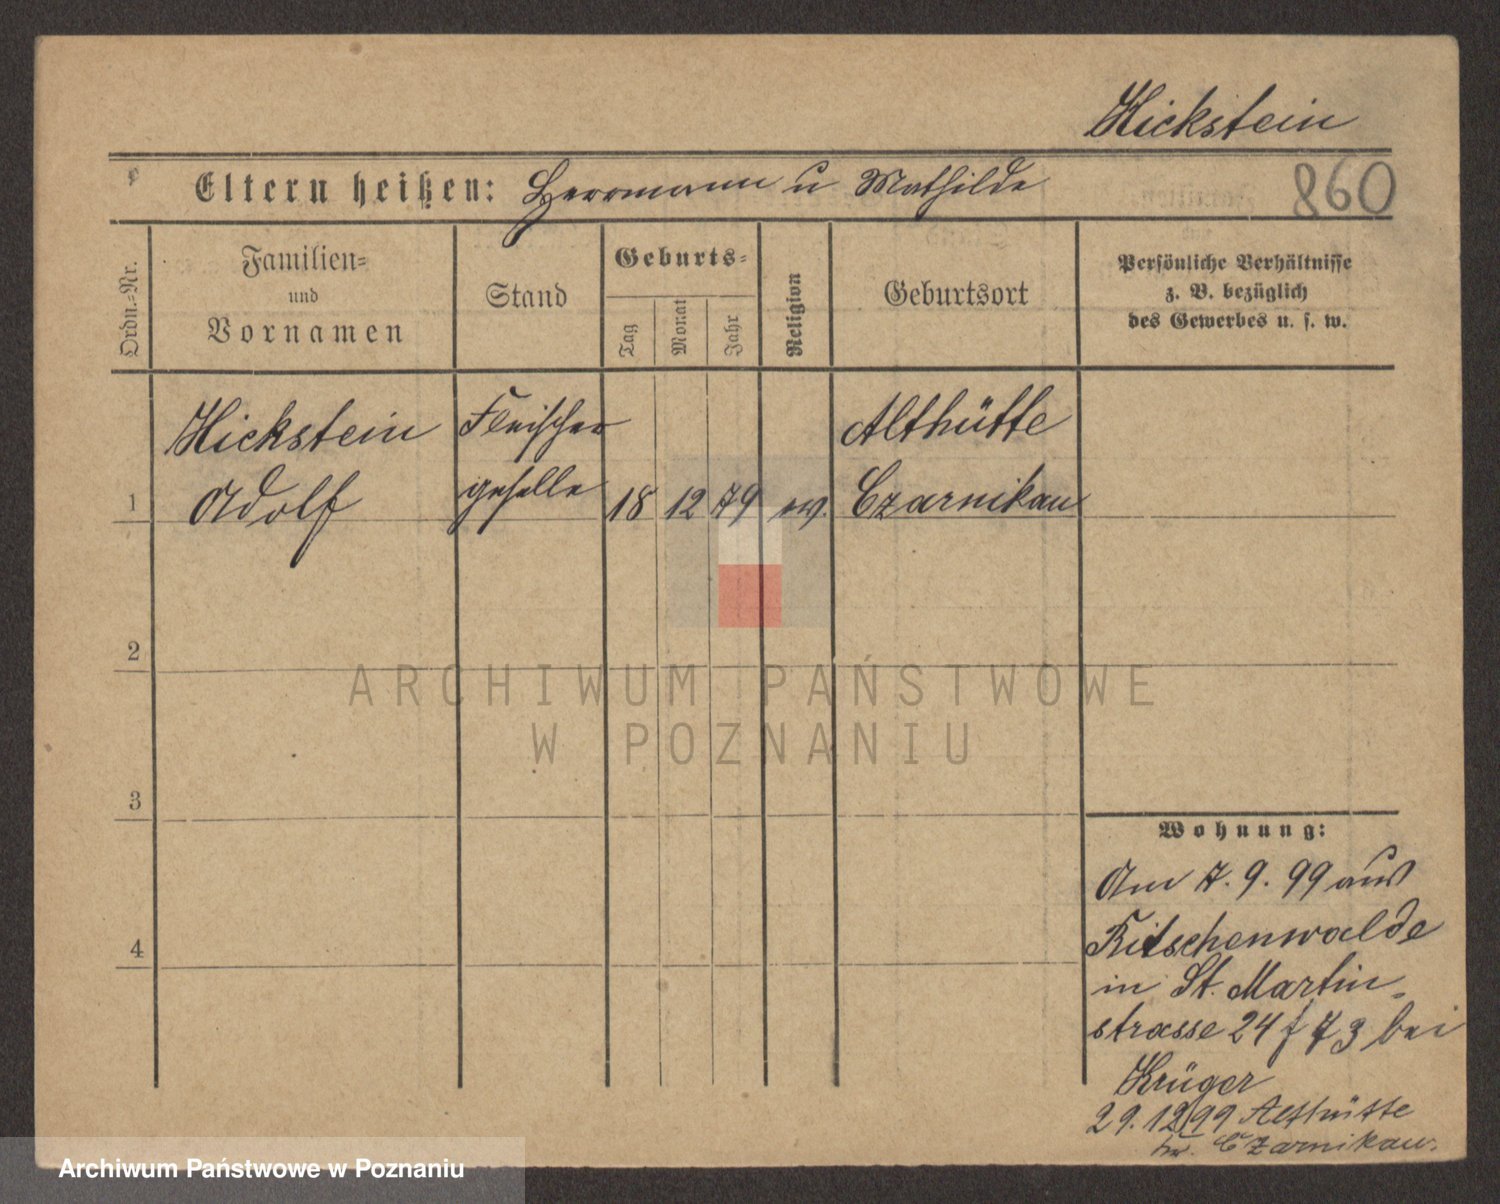 Hickstein
Eltern heißen: Herrmann u Mathilde
860
Ordn.=Nr.
Familien=
und
Vornamen
Stand
Geburts=
Tag
Monat
Jahr
Religion
Geburtsort
Persönliche Verhältnisse
z. B. bezüglich
des Gewerbes u. s. w.
Hickstein Fleischer Althütte
1 Adolf geselle 18 12 79 ev. Czarnikau
2
ARCHIWUM PAŃSTWOWE
W POZNANIU
3
Wohnung:
Am 7. 9. 99 aus
Ritschenwalde
in St. Martin=
strasse 24 bei
4
Krüger
29. 12 99 Althütte
Czarnikau.
Archiwum Państwowe w Poznaniu